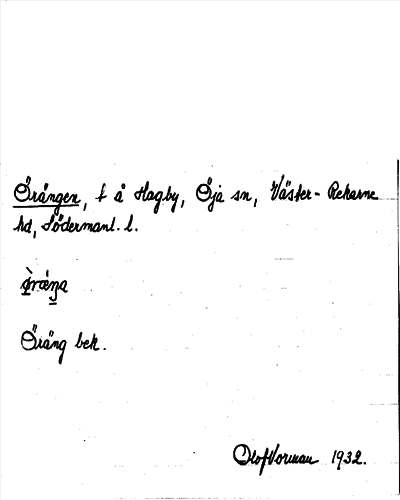 Örängen, t å Hagby, Öja sn, Väster-Rekarne
hd, Södermanl. l.
Öräng bek.
Olof Vorman 1932.